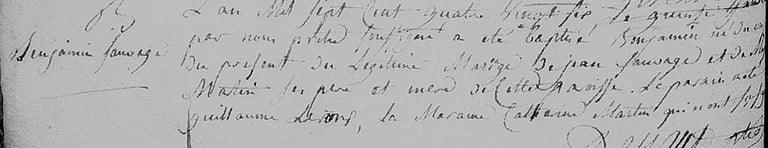 Benjamin Sauvage
L'an Mil Sept Cent quatre vingt six Le quinze
par nous prêtre soussigné a été baptisé Benjamin né du
du présent du Légitime Mariage De jean Sauvage et de
Martin ses père et mere de Cette Paroisse. Le parain a été
guillaume Leroux, la Maraine Catharine Martin qui n'ont